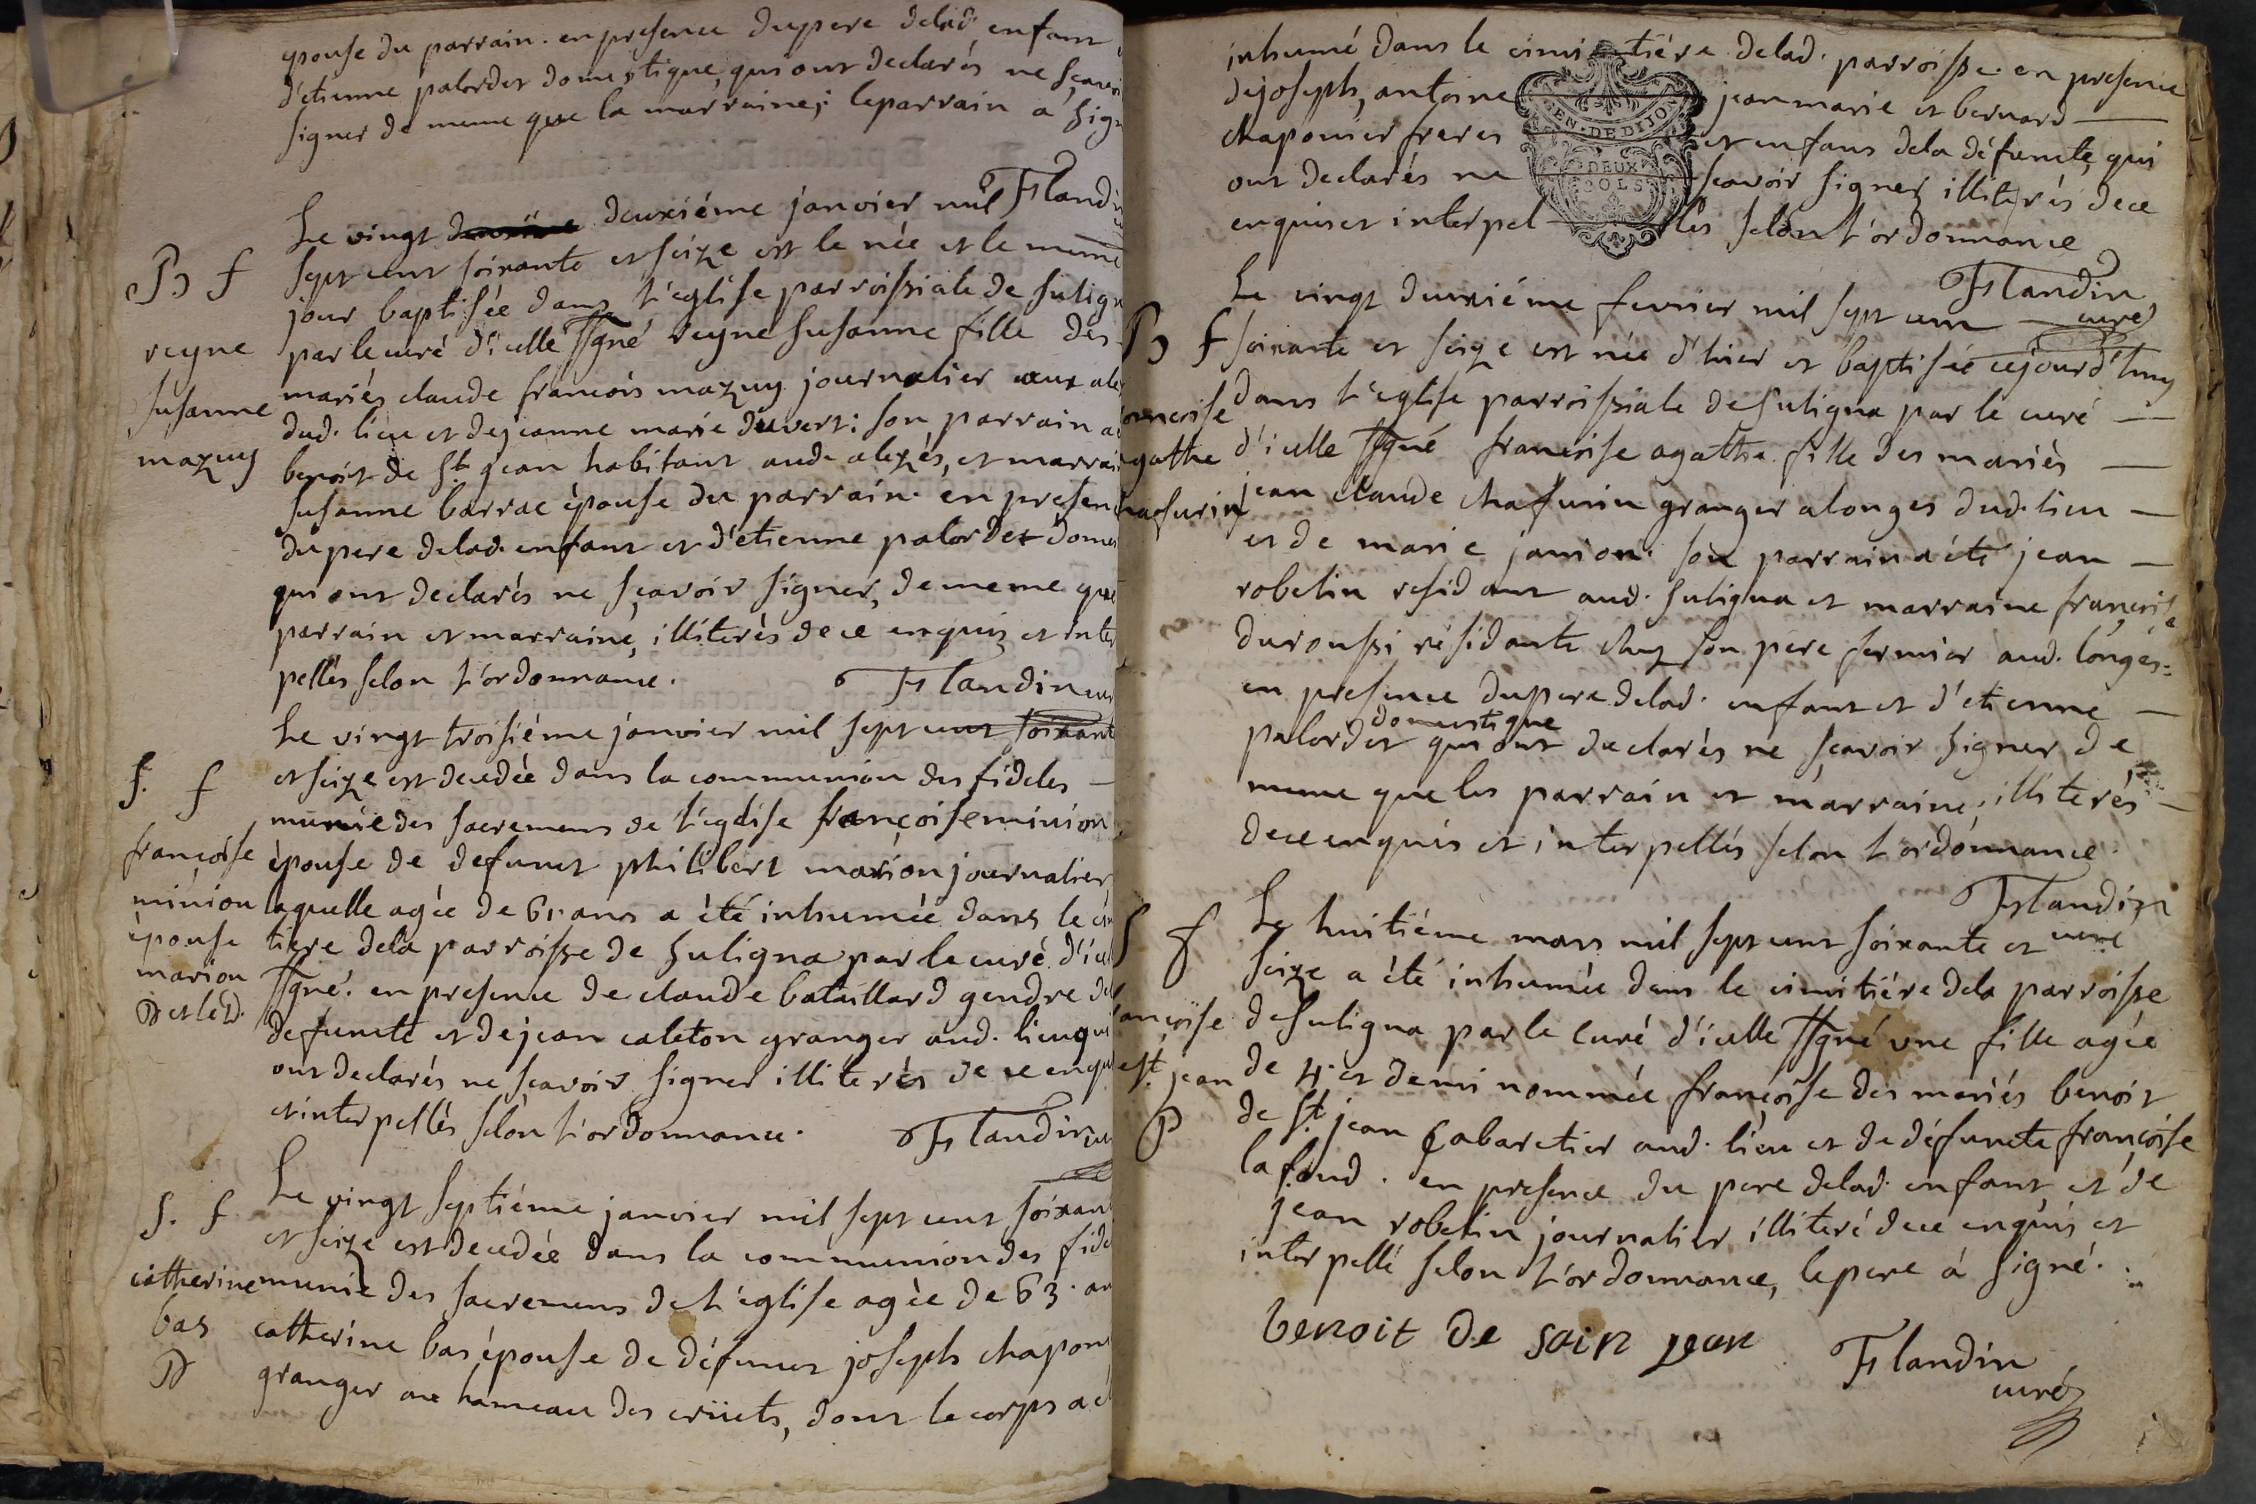 epouse du parrain. en presence dupere delad. enfant
d'etienne palordet domestique, qui ont declarés ne sçavoi
signer de meme que la marraine; leparrain a sign
Flandi
Le vingt deuxiéme janvier mil
B f
sept cent soixante et seize est le née et le meme
jour baptisée dans l'eglise parroissiale de suligna
reyne
par le curé d'icelle ssgné reyne susanne fille des
susanne
mariés claude francois mazuy journalier aux alez
mazuy
dud. lieu et dejeanne marie duvert: son parrain a
benoit de st. jean habitant aud. alezés, et marrai
susanne barrac épouse du parrain. en presen
dupere delad. enfant et d'etienne palordet domes
qui ont declarés ne sçavoir signer, de meme que
parrain et marraine, illiterés de ce enquis et inter
pellés selon l'ordonnance.
Flandin cu
Le vingt troisiéme janvier mil sept cent soixant
S. f
et seize est decedée dans la communion des fideles
munie des sacremens de l'eglise françoise minion
françoise
épouse de defunct philibert marion journalier
minion
laquelle agée de 61 ans a été inhumée dans le cim
épouse
tiere dela parroisse de suligna par le curé d'icel
marion
ssgné. en presence de claude bataillard gendre del
defuncte et dejean caleton granger aud. lieu qui
ont declarés ne sçavoir signer illiterés de ce enqui
et interpellés selon l'ordonnance.
Flandin cu
Le vingt septiéme janvier mil sept cent soixan
S. f
et seize est decedée dans la communion des fide
catherine
munie des sacremens de l'eglise agée de 63. an
bas
catherine bas épouse de défunct joseph chapon
D
granger au hameau des criiets, dont le corps a é
inhumé dans le cimitiére delad. parroisse. en presence
dejoseph, antoine jeanmarie et bernard
chaponier freres et enfans dela défuncte, qui
ont declarés ne sçavoir signer illiterés de ce
enquis et interpellés selon l'ordonnance
GEN. DE DIJON
DEUX
SOLS
Flandin
curé
Le vingt deuxiéme fevrier mil sept cent
B f
soixante et seize est née d'hier et baptisée cejourd'huy
ancoise
dans l'eglise parroissiale de suligna par le curé
agathe
d'icelle ssgné francoise agathe fille des mariés
hafurin
jean claude chafurin granger alonges dud. lieu
et de marie janion. son parrain a été jean
robelin residant aud. suligna et marraine françoise
duroussi résidante chez son pere fermier aud. longes.
en presence dupere delad. enfant et d'etienne
domestique
palordet qui ont declarés ne sçavoir signer de
meme que les parrain et marraine, illiterés
de ce enquis et interpellés selon l'ordonnance.
Flandin
curé
Le huitiéme mars mil sept cent soixante et
S f
seize a été inhumée dans le cimitiére dela parroisse
ançoise
de suligna par le curé d'icelle ssgné une fille agée
est. jean
de 4. et demi nommée françoise des mariés benoit
P
de st. jean cabaretier aud. lieu et de défuncte françoise
lafond. en presence du pere delad. enfant, et de
jean robelin journalier illiteré de ce enquis et
interpellé selon l'ordonnance, lepere a signé.
benoit de sain jean
Flandin
curé